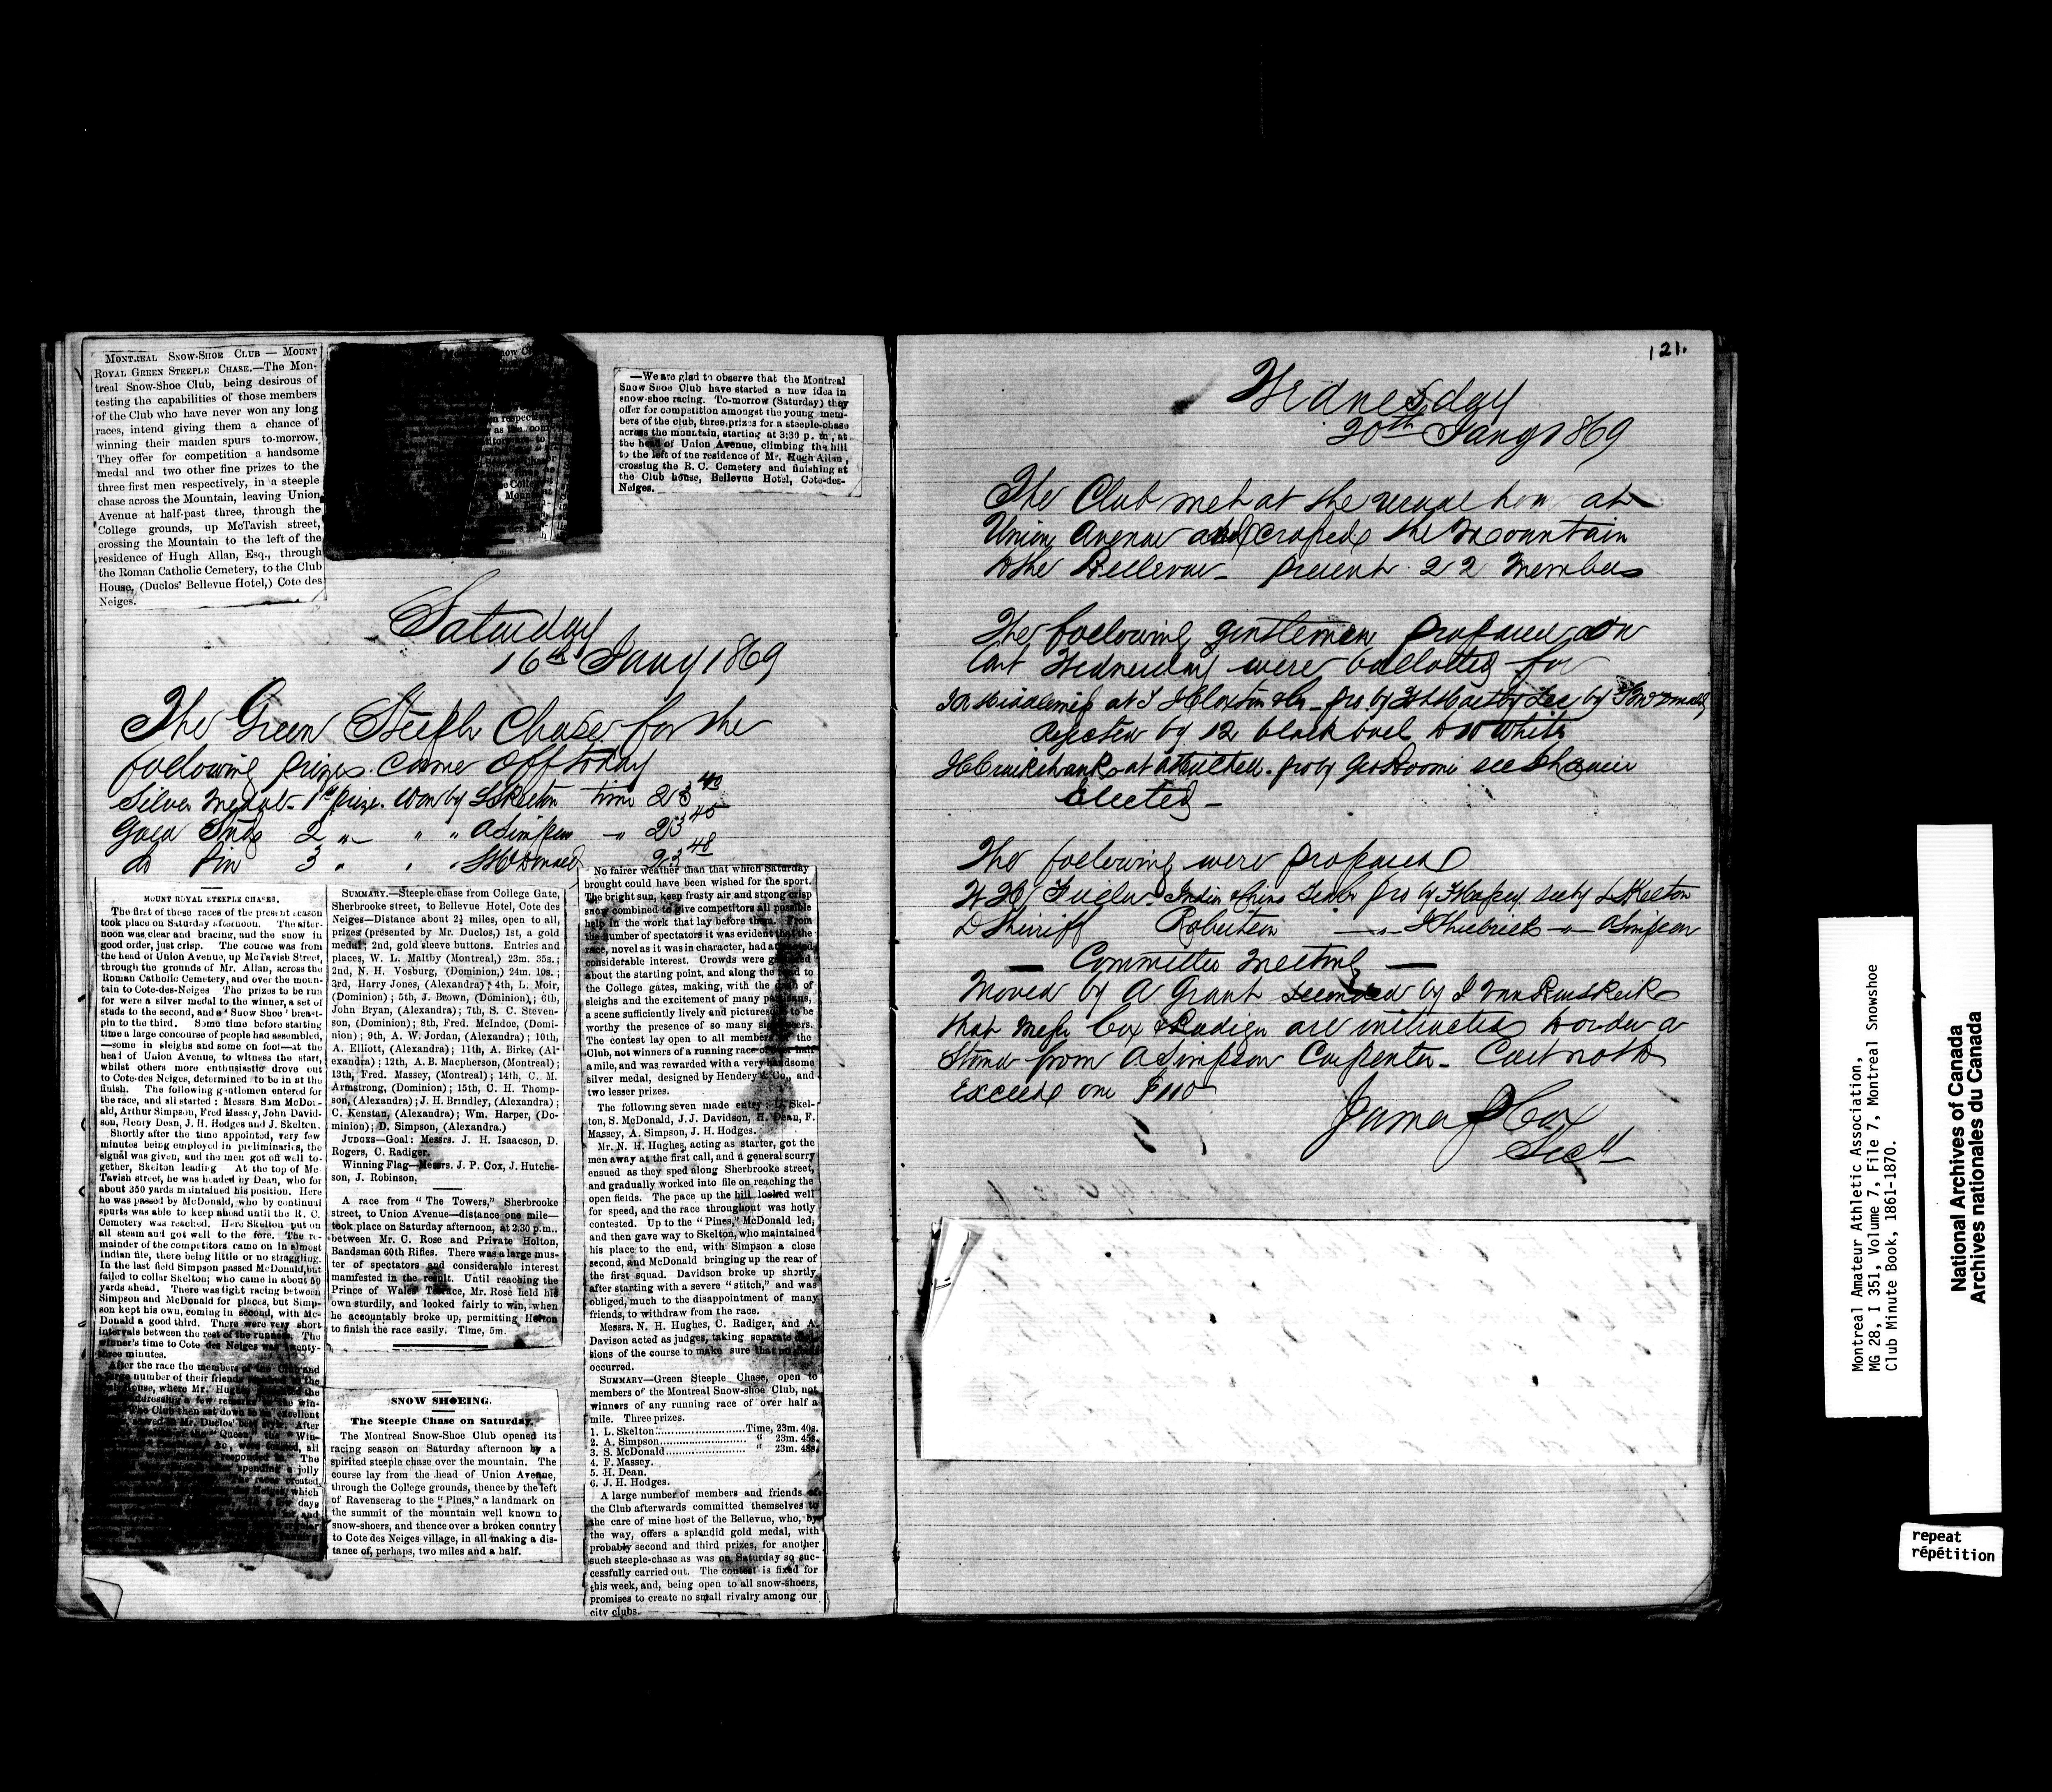 MONTREAL SNOW-SHOE CLUB — MOUNT
ROYAL GREEN STEEPLE CHASE.—The Mon-
treal Snow-Shoe Club, being desirous of
testing the capabilities of those members
of the Club who have never won any long
races, intend giving them a chance of
winning their maiden spurs to-morrow.
They offer for competition a handsome
medal and two other fine prizes to the
three first men respectively, in a steeple
chase across the Mountain, leaving Union
Avenue at half-past three, through the
College grounds, up McTavish street,
crossing the Mountain to the left of the
residence of Hugh Allan, Esq., through
the Roman Catholic Cemetery, to the Club
House, (Duclos' Bellevue Hotel,) Cote des
Neiges.
—We are glad to observe that the Montreal
Snow Shoe Club have started a new idea in
snow-shoe racing. To-morrow (Saturday) they
offer for competition amongst the young mem-
bers of the club, three prizes for a steeple-chase
across the mountain, starting at 3:30 p. m., at
the head of Union Avenue, climbing the hill
to the left of the residence of Mr. Hugh Allan,
crossing the R. C. Cemetery and finishing at
the Club house, Bellevue Hotel, Cote-des-
Neiges.
Saturday
16th Jany 1869
The Green Steeple Chase for the
following prizes came off today
Silver Medal - 1st prize. Won by L Skelton time 23 40
Gold Studs 2 " " " A Simpson " 23 45
do Pin 3 " " " S McDonald 23 48
MOUNT ROYAL STEEPLE CHASES.
The first of these races of the present season
took place on Saturday afternoon. The after-
noon was clear and bracing, and the snow in
good order, just crisp. The course was from
the head of Union Avenue, up McTavish Street,
through the grounds of Mr. Allan, across the
Roman Catholic Cemetery, and over the moun-
tain to Cote-des-Neiges The prizes to be run
for were a silver medal to the winner, a set of
studs to the second, and a "Snow Shoe" breast-
pin to the third. Some time before starting
time a large concourse of people had assembled,
—some in sleighs and some on foot—at the
head of Union Avenue, to witness the start,
whilst others more enthusiastic drove out
to Cote-des Neiges, determined to be in at the
finish. The following gentlemen entered for
the race, and all started: Messrs Sam McDon-
ald, Arthur Simpson, Fred Massey, John David-
son, Henry Dean, J. H. Hodges and J. Skelton.
Shortly after the time appointed, very few
minutes being employed in preliminaries, the
signal was given, and the men got off well to-
gether, Skelton leading At the top of Mc-
Tavish street, he was headed by Dean, who for
about 350 yards maintained his position. Here
he was passed by McDonald, who by continual
spurts was able to keep ahead until the R. C.
Cemetery was reached. Here Skelton put on
all steam and got well to the fore. The re-
mainder of the competitors came on in almost
Indian file, there being little or no straggling.
In the last field Simpson passed McDonald, but
failed to collar Skelton; who came in about 50
yards ahead. There was tight racing between
Simpson and McDonald for places, but Simp-
son kept his own, coming in second, with Mc-
Donald a good third. There were very short
intervals between the rest of the runners. The
winner's time to Cote des Neiges was twenty-
three minutes.
After the race the members of the Club and
large number of their friends
House, where Mr. Hughes the
addressing a few remarks to the win-
The Club then sat down to an excellent
served in Mr. Duclos' best style. After
of the "Queen," the "Win-
&c., were toasted, all
responded to. The
spending a jolly
the races created,
which
days
for and
SUMMARY.—Steeple-chase from College Gate,
Sherbrooke street, to Bellevue Hotel, Cote des
Neiges—Distance about 2½ miles, open to all,
prizes (presented by Mr. Duclos,) 1st, a gold
medal; 2nd, gold sleeve buttons. Entries and
places, W. L. Maltby (Montreal,) 23m. 35s.;
2nd, N. H. Vosburg, (Dominion,) 24m. 10s.;
3rd, Harry Jones, (Alexandra); 4th, L. Moir,
(Dominion); 5th, J. Brown, (Dominion,); 6th,
John Bryan, (Alexandra); 7th, S. C. Steven-
son, (Dominion); 8th, Fred. McIndoe, (Domi-
nion); 9th, A. W. Jordan, (Alexandra); 10th,
A. Elliott, (Alexandra); 11th, A. Birke, (Al-
exandra); 12th, A. B. Macpherson, (Montreal);
13th, Fred. Massey, (Montreal); 14th, C. M.
Armstrong, (Dominion); 15th, C. H. Thomp-
son, (Alexandra); J. H. Brindley, (Alexandra);
C. Kenstan, (Alexandra); Wm. Harper, (Do-
minion); D. Simpson, (Alexandra.)
JUDGES—Goal: Messrs. J. H. Isaacson, D.
Rogers, C. Radiger.
Winning Flag—Messrs. J. P. Cox, J. Hutche-
son, J. Robinson.
A race from "The Towers," Sherbrooke
street, to Union Avenue—distance one mile—
took place on Saturday afternoon, at 2:30 p.m.,
between Mr. C. Rose and Private Holton,
Bandsman 60th Rifles. There was a large mus-
ter of spectators and considerable interest
manifested in the result. Until reaching the
Prince of Wales Terrace, Mr. Rose held his
own sturdily, and looked fairly to win, when
he accountably broke up, permitting Holton
to finish the race easily. Time, 5m.
SNOW SHOEING.
The Steeple Chase on Saturday.
The Montreal Snow-Shoe Club opened its
racing season on Saturday afternoon by a
spirited steeple chase over the mountain. The
course lay from the head of Union Avenue,
through the College grounds, thence by the left
of Ravenscrag to the "Pines," a landmark on
the summit of the mountain well known to
snow-shoers, and thence over a broken country
to Cote des Neiges village, in all making a dis-
tance of, perhaps, two miles and a half.
No fairer weather than that which Saturday
brought could have been wished for the sport.
The bright sun, keen frosty air and strong crisp
snow combined to give competitors all possible
help in the work that lay before them. From
the number of spectators it was evident that the
race, novel as it was in character, had attracted
considerable interest. Crowds were gathered
about the starting point, and along the road to
the College gates, making, with the dash of
sleighs and the excitement of many partisans,
a scene sufficiently lively and picturesque to be
worthy the presence of so many sight-seers.
The contest lay open to all members of the
Club, not winners of a running race of over half
a mile, and was rewarded with a very handsome
silver medal, designed by Hendery & Co., and
two lesser prizes.
The following seven made entry: L. Skel-
ton, S. McDonald, J. J. Davidson, H. Dean, F.
Massey, A. Simpson, J. H. Hodges.
Mr. N. H. Hughes, acting as starter, got the
men away at the first call, and a general scurry
ensued as they sped along Sherbrooke street,
and gradually worked into file on reaching the
open fields. The pace up the hill looked well
for speed, and the race throughout was hotly
contested. Up to the "Pines," McDonald led,
and then gave way to Skelton, who maintained
his place to the end, with Simpson a close
second, and McDonald bringing up the rear of
the first squad. Davidson broke up shortly
after starting with a severe "stitch," and was
obliged, much to the disappointment of many
friends, to withdraw from the race.
Messrs. N. H. Hughes, C. Radiger, and A.
Davison acted as judges, taking separate
sions of the course to make sure that no
occurred.
SUMMARY—Green Steeple Chase, open to
members of the Montreal Snow-shoe Club, not
winners of any running race of over half a
mile. Three prizes.
1. L. Skelton......Time, 23m. 40s.
2. A. Simpson...... " 23m. 45s.
3. S. McDonald...... " 23m. 48s.
4. F. Massey.
5. H. Dean.
6. J. H. Hodges.
A large number of members and friends of
the Club afterwards committed themselves to
the care of mine host of the Bellevue, who, by
the way, offers a splendid gold medal, with
probably second and third prizes, for another
such steeple-chase as was on Saturday so suc-
cessfully carried out. The contest is fixed for
this week, and, being open to all snow-shoers,
promises to create no small rivalry among our
city clubs.
121.
Wednesday
20th Jany 1869
The Club met at the usual hour at
Union Avenue and crossed the Mountain
to the Bellevue - present 22 Members
The following gentlemen proposed on
last Wednesday were ballotted for
rejected by 12 black ball to 10 white
Elected -
The following were proposed
— Committee Meeting —
Moved by A Grant seconded by
that Messrs Cox & Radiger are instructed to order a
from A Simpson Carpenter - Cost not to
exceed one $100
James P Cox
Secy
Montreal Amateur Athletic Association,
MG 28, I 351, Volume 7, File 7, Montreal Snowshoe
Club Minute Book, 1861-1870.
National Archives of Canada
Archives nationales du Canada
repeat
répétition